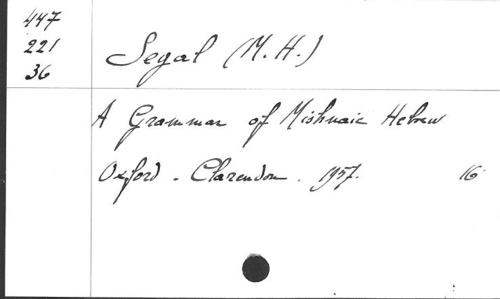 447
221
36
Segal (M.H.)
A Grammar of Mishnaic Hebrew
Oxford. Clarendon. 1957. 16